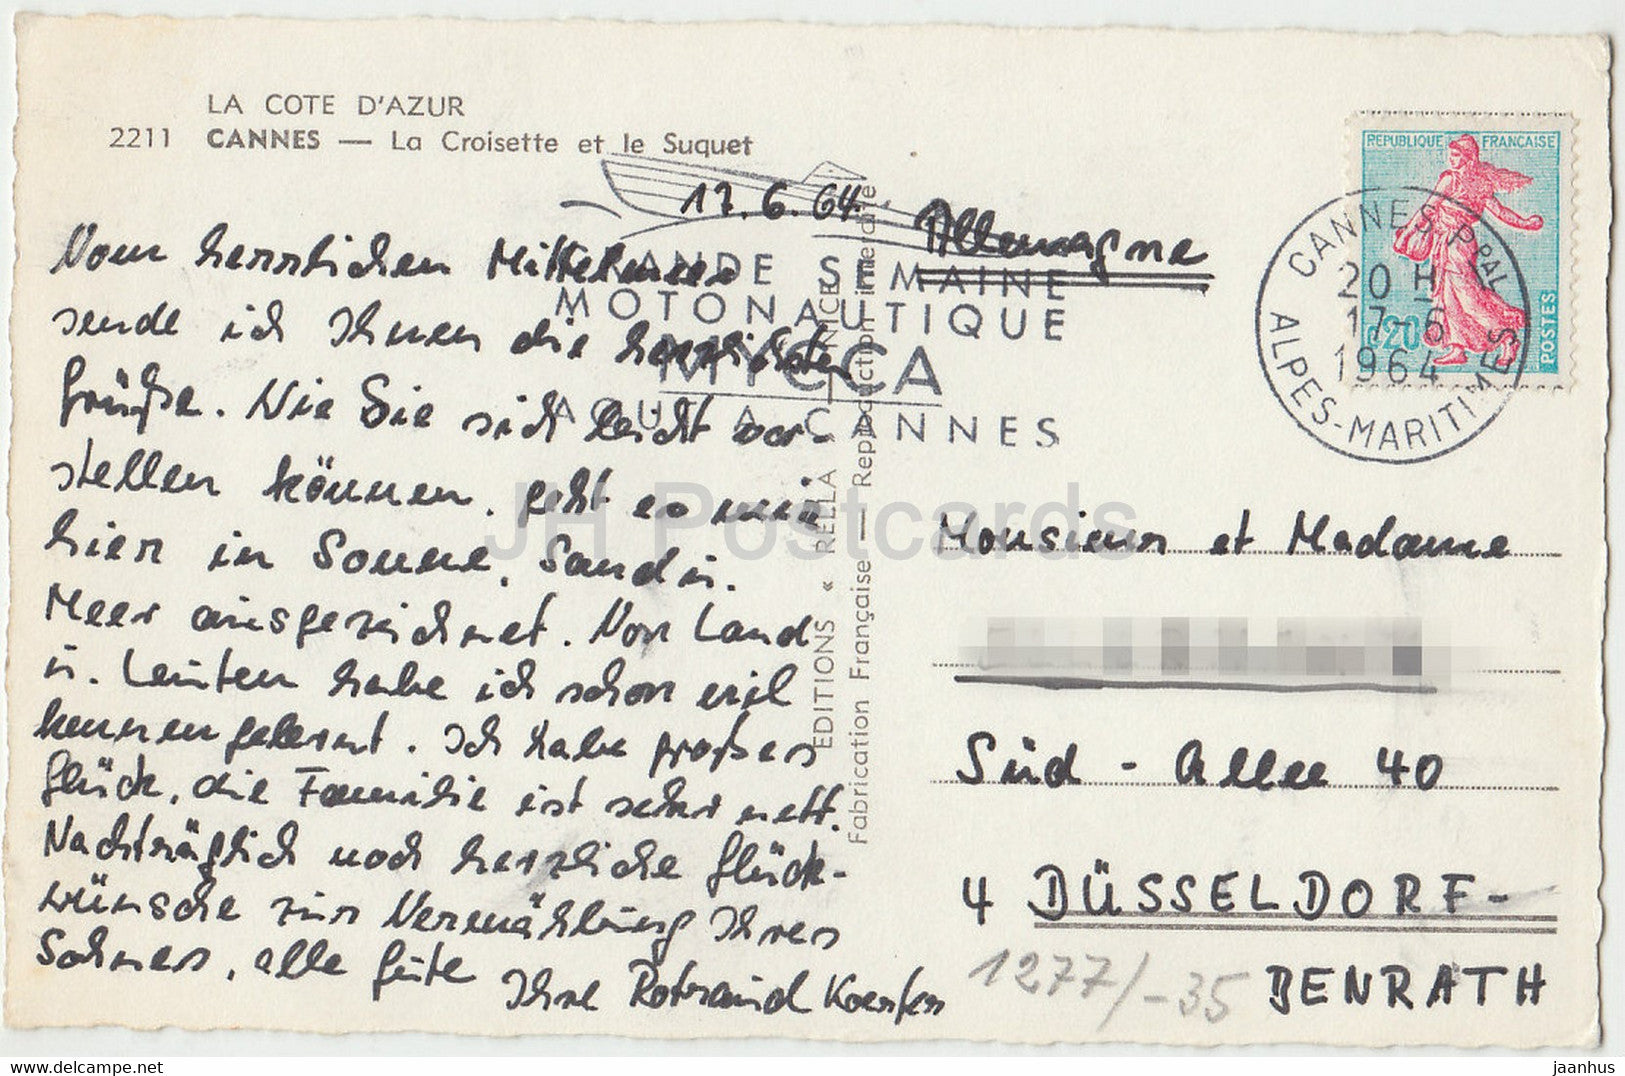 LA COTE D'AZUR
2211 CANNES — La Croisette et le Suquet
17.6.64.
Vom herrlichen Mittelmeer
sende ich Ihnen die herzlichsten
Grüße. Wie Sie sich leicht vor-
stellen können, geht es mir
hier in Sonne, Sand u.
Meer ausgezeichnet. Von Land
u. Leuten habe ich schon viel
kennengelernt. Ich habe großes
Glück, die Familie ist sehr nett.
Nachträglich noch herzliche Glück-
wünsche zur Vermählung Ihres
Sohnes, alle Gute
Ihre
ANDE SEMAINE
MOTONAUTIQUE
MYCCA
A CANNES
EDITIONS « RELLA NICE
Fabrication Française — Reproduction interdite
Allemagne
REPUBLIQUE FRANÇAISE
0,20
POSTES
CANNES PPAL
20 H
17-6
1964
ALPES-MARITIMES
Monsieur et Madame
Süd - Allee 40
4 DÜSSELDORF-
BENRATH
1277/-35
JH Postcards
jaanhus
delcampe.net